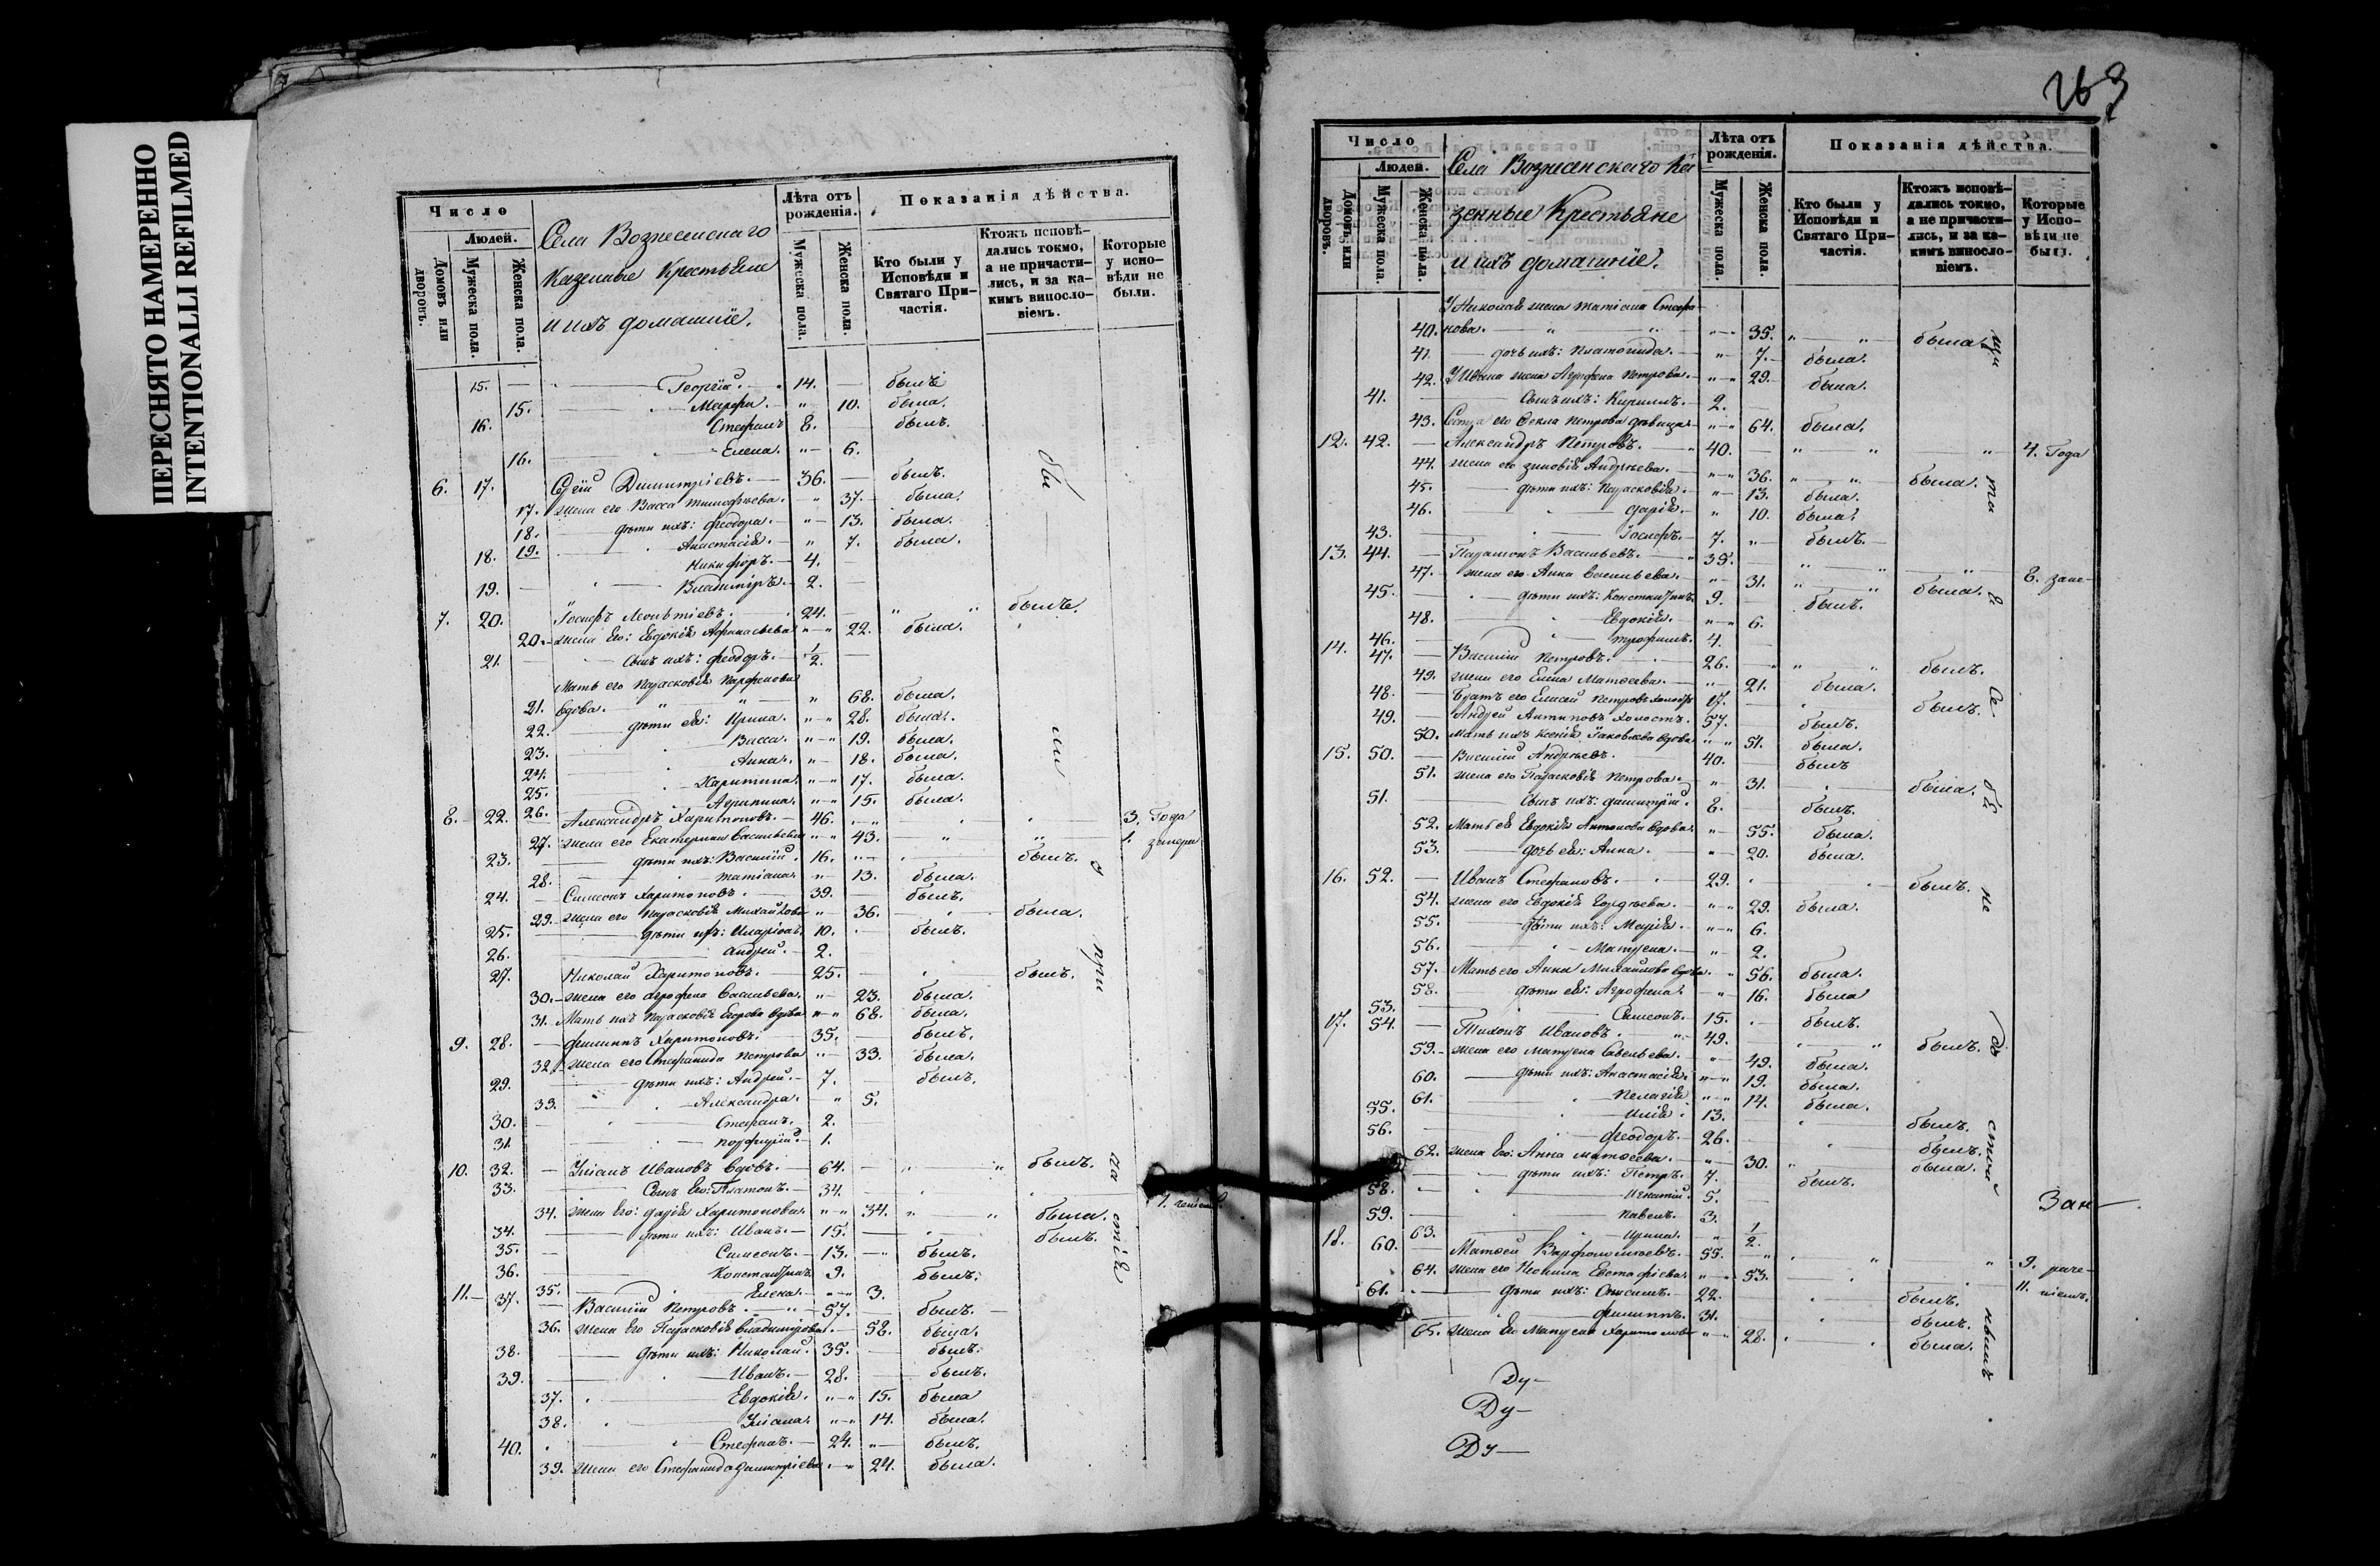 ПЕРЕСНЯТО НАМЕРЕННО
INTENTIONALLI REFILMED
Число
Людей.
Домовъ или дворовъ.
Мужеска пола.
Женска пола.
Села Вознесенскаго
Казенные Крестьяне
и ихъ домашніе.
Лѣта отъ рожденія.
Мужеска пола.
Женска пола.
Показанія дѣйства.
Кто были у Исповѣди и Святаго Причастія.
Ктожъ исповѣдались токмо, а не причастились, и за какимъ винословіемъ.
Которые у исповѣди не были.
15. Георгій. 14. былъ
15. Марфа. 10. была.
16. Стефанъ 8. былъ.
16. Елена. 6.
6. 17. Сергій Димитріевъ. 36. былъ.
17. жена его Васса Тимофѣева. 37. была.
18. дѣти ихъ: Феодора. 13. была.
19. Анастасія. 7. была.
18. Никифоръ. 4.
19. Владиміръ. 2.
7. 20. Іосифъ Леонтіевъ. 24. былъ.
20. жена Его: Евдокія Афанасьева 22. была.
21. сынъ ихъ: Феодоръ. 1/2.
Мать его Парасковія Парфенова
21. вдова. 68. была.
22. дѣти ея: Ирина. 28. была.
23. Васса. 19. была.
24. Анна. 18. была.
25. Харитина. 17. была.
26. Агрипина. 15. была.
8. 22. Александръ Харитоновъ. 46. 3. Года
27. жена его Екатерина Васильева 43. 1.
23. дѣти ихъ: Василій. 16. былъ.
28. Татіана. 13. была.
24. Симеонъ Харитоновъ. 39. былъ.
29. жена его Парасковія Михайлова 36. была.
25. дѣти ихъ: Иларіонъ. 10. былъ.
26. Андрей. 2.
27. Николай Харитоновъ. 25. былъ.
30. жена его Агрофена Васильева. 23. была.
31. Мать ихъ Парасковія Егорова вдова 68. была.
9. 28. Филиппъ Харитоновъ. 35. былъ.
32. жена его Стефанида Петрова 33. была.
29. дѣти ихъ: Андрей. 7. былъ.
33. Александра. 5.
30. Стефанъ. 2.
31. Порфирій. 1.
10. 32. Уліанъ Ивановъ вдовъ. 64. былъ.
33. Сынъ Его: Платонъ. 34.
34. жена Его: Дарія Харитонова. 34. была.
34. дѣти ихъ: Иванъ. 15. былъ.
35. Симеонъ. 13. былъ.
36. Константинъ 9. былъ.
35. Елена. 3.
11. 37. Василій Петровъ. 57. былъ.
36. жена Его Парасковія Владимірова. 58. была.
38. дѣти ихъ: Николай. 35. былъ.
39. Иванъ. 28. былъ.
37. Евдокія. 15. была
38. Уліана. 14. была.
40. Стефанъ. 24. былъ.
39. жена его Стефанида Димитріева 24. была.
263
Число
Людей.
Домовъ или дворовъ.
Мужеска пола.
Женска пола.
Села Вознесенскаго Ка
зенные Крестьяне
и ихъ домашніе.
Лѣта отъ рожденія.
Мужеска пола.
Женска пола.
Показанія дѣйства.
Кто были у Исповѣди и Святаго Причастія.
Ктожъ исповѣдались токмо, а не причастились, и за какимъ винословіемъ.
Которые у Исповѣди не были.
У Николая жена Татіана Стефа
40. нова. 35. была.
41. дочь ихъ: Платонида. 7. была.
42. У Ивана жена Агрофена Петрова. 29. была.
41. Сынъ ихъ: Кириллъ. 2.
43. Сестра его Секла Петрова дѣвица 64. была.
12. 42. Александръ Петровъ. 40. 4. Года
44. жена его Зиновія Андрѣева. 36. была.
45. дѣти ихъ: Парасковія. 13. была.
46. Дарія. 10. была.
43. Іосифъ. 7. былъ.
13. 44. Парамонъ Васильевъ. 39. 8.
47. жена его Анна Савельева. 31. была.
45. дѣти ихъ: Константинъ. 9. былъ.
48. Евдокія. 6.
46. Трофимъ. 4.
14. 47. Василій Петровъ. 26. былъ.
49. жена его Елена Матѳеева. 21. была.
48. Братъ его Елисей Петровъ холостъ 17. былъ.
49. Андрей Антиповъ Холостъ. 57. былъ.
50. Мать ихъ Ксенія Іаковлева вдова 51. была.
15. 50. Василій Андрѣевъ. 40. былъ
51. жена его Парасковія Петрова. 31. была.
51. сынъ ихъ: Димитрій. 8. былъ.
52. Мать ея Евдокія Антонова вдова. 55. была.
53. дочь ея: Анна. 20. была.
16. 52. Иванъ Стефановъ. 29. былъ.
54. жена его Евдокія Гордѣева. 29. была.
55. дѣти ихъ: Марія. 6.
56. Матрена. 2.
57. Мать его Анна Михайлова вдова. 56. была.
58. дѣти ея: Агрофена. 16. была
53. Симеонъ. 15. былъ.
17. 54. Тихонъ Ивановъ. 49. былъ.
59. жена его Матрена Савельева. 49. была.
60. дѣти ихъ: Анастасія. 19. была.
61. Пелагія 14. была.
55. Илія. 13. былъ.
56. Феодоръ. 26. былъ.
62. жена Его: Анна Матѳеева. 30. была.
дѣти ихъ: Петръ. 7. былъ.
58. Игнатій. 5.
59. Павелъ. 3.
63. Ирина. 1/2.
18. 60. Матѳей Варфоломѣевъ. 55. 9.
64. жена его Неонила Евстафіева. 53. 11.
61. дѣти ихъ: Онисимъ. 22. былъ.
Филиппъ. 31. былъ.
65. жена Его Матрена Харитонова 28. была.
Ду-
Ду-
Ду-